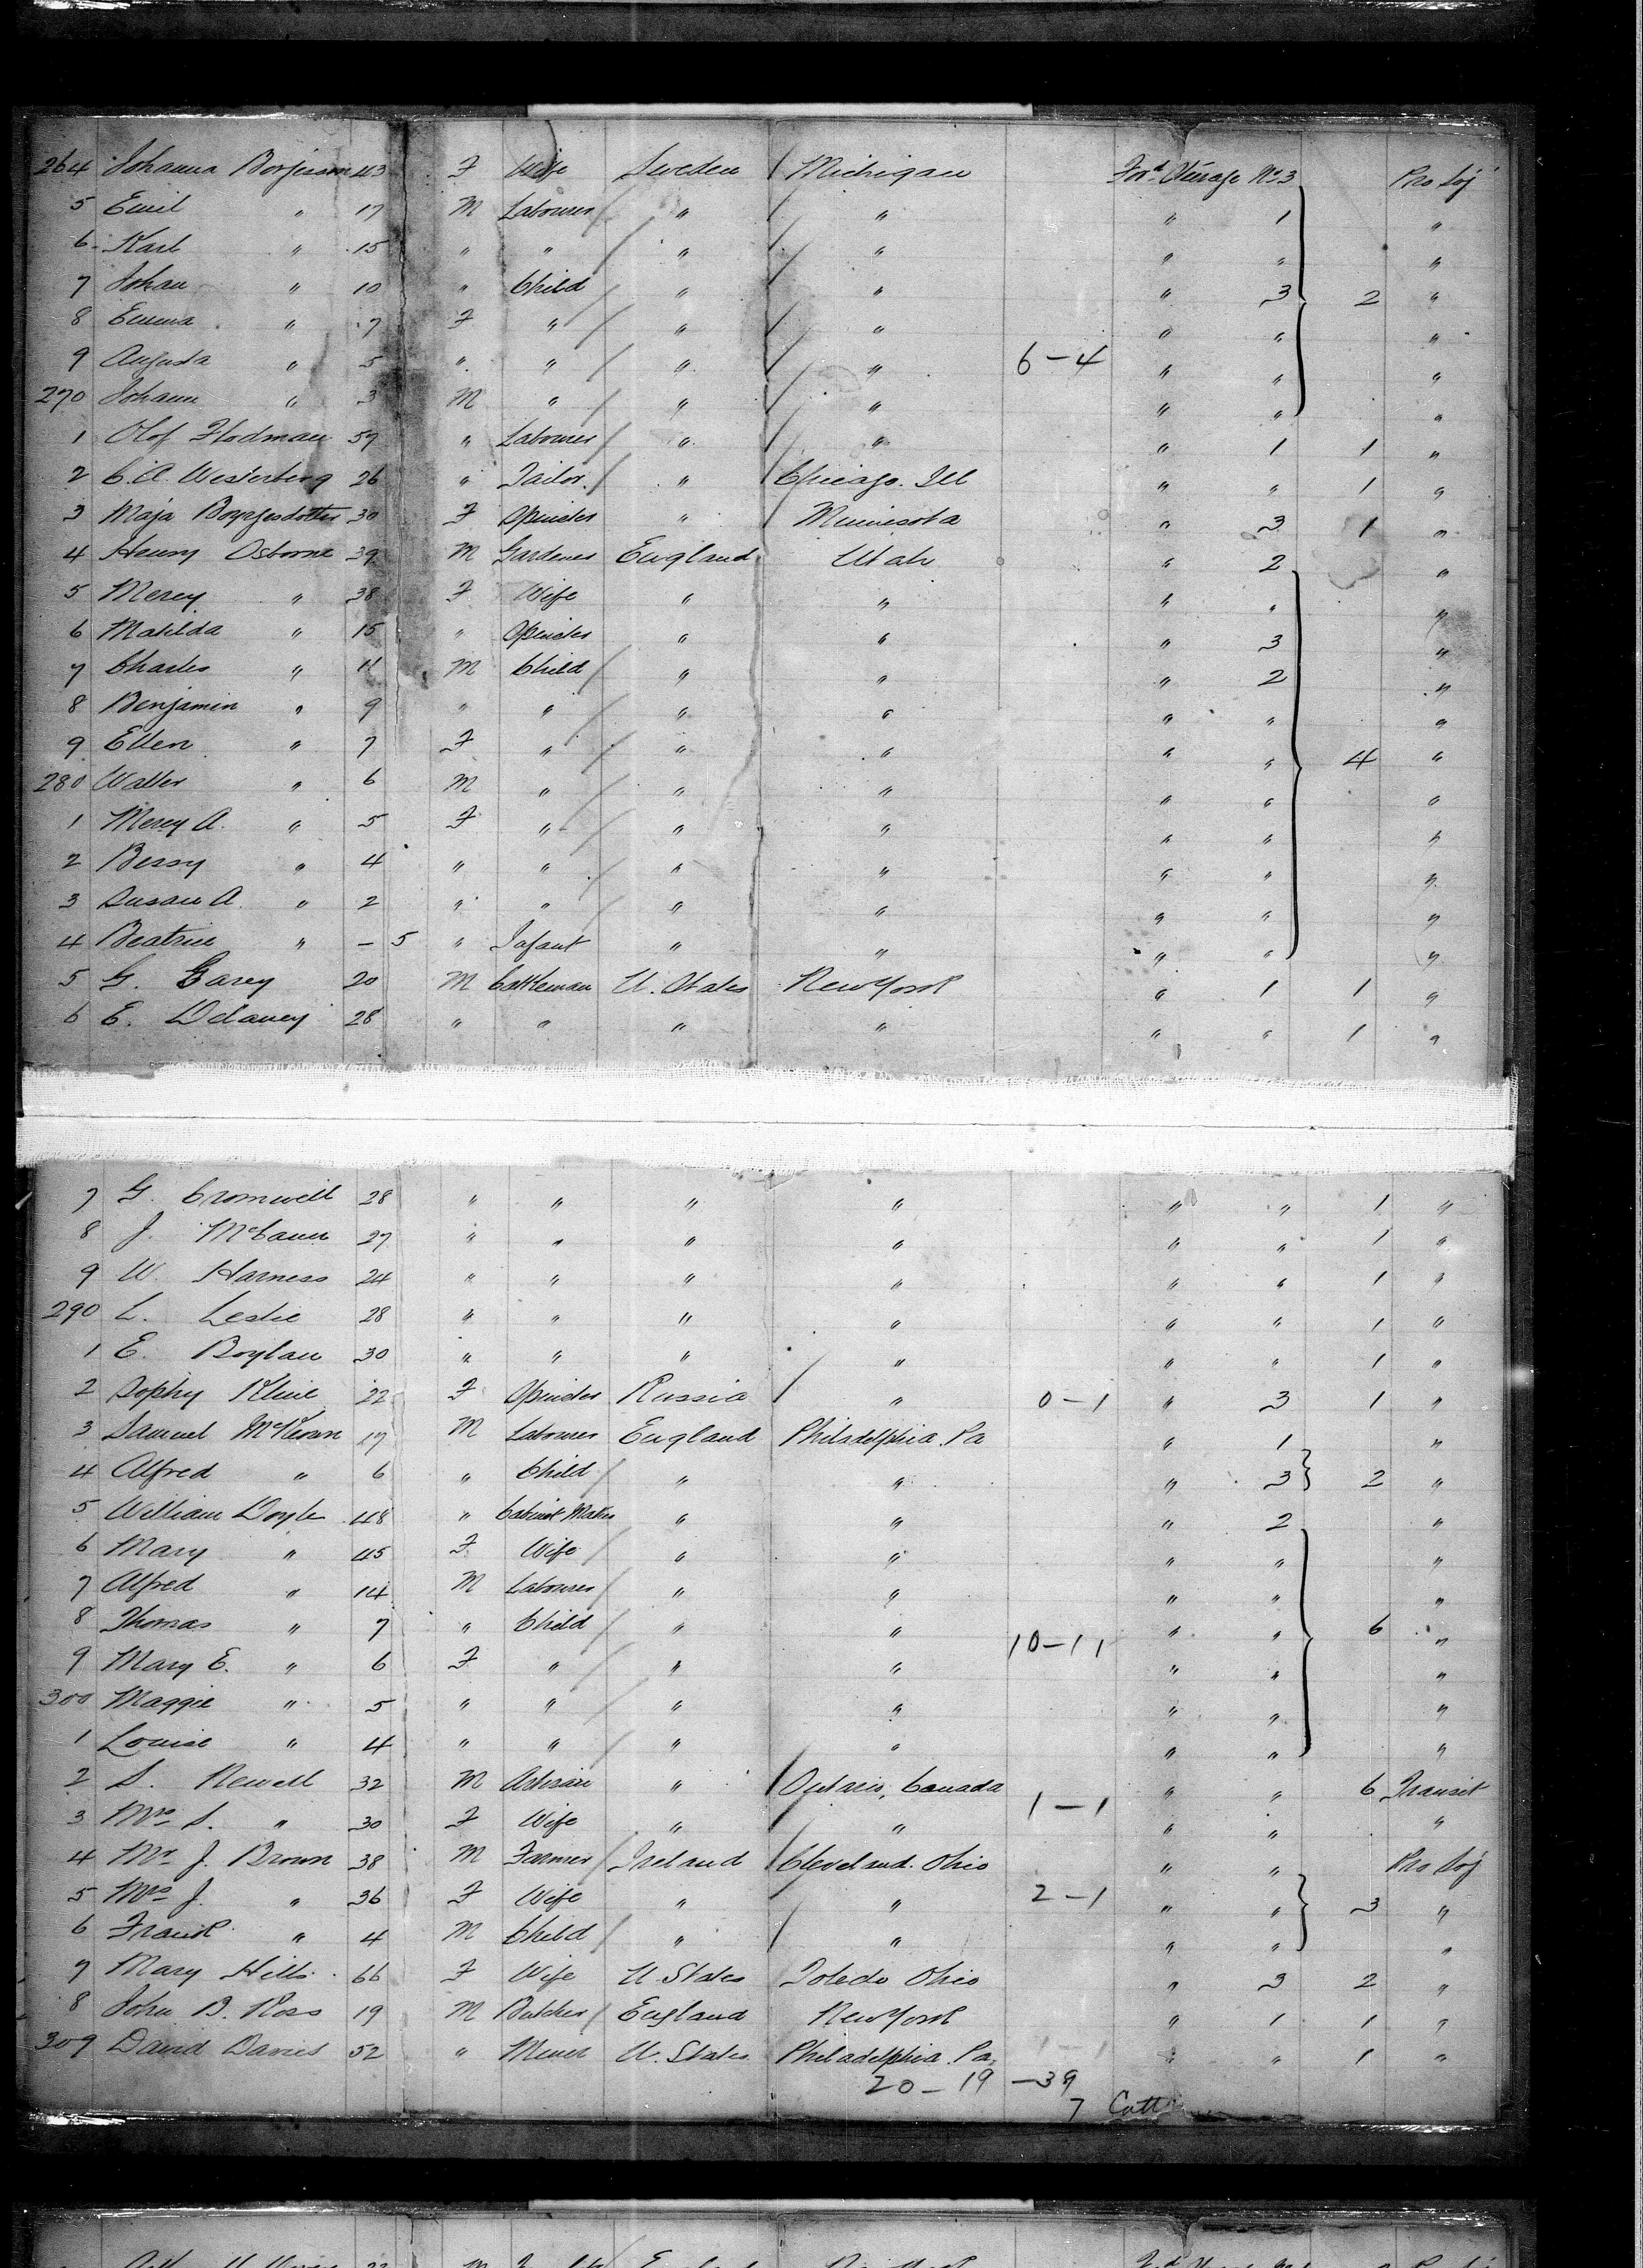 264 Johanna Borjesson 43 F Wife Sweden Michigan For'd Steerage No 3 Pro Soj
5 Emil " 17 M Labourer " " " 1 "
6 Karl " 15 " " " " " " "
7 Johan " 10 " Child " " " 3 2 "
8 Emma " 7 F " " " " " "
9 Augusta " 5 " " " " 6-4 " " "
270 Johann " 3 M " " " " " "
1 Olof Flodman 59 " Labourer " " " 1 1 "
2 C.A. Westerberg 26 " Tailor " Chicago. Ill " " 1 "
3 Maja 30 F Spinster " Minnesota " 3 1 "
4 Henry Osborne 39 M Gardener England Utah " 2 "
5 Mercy " 38 F Wife " " " " "
6 Matilda " 15 " Spinster " " " 3 "
7 Charles " 11 M Child " " " 2 "
8 Benjamin " 9 " " " " " " "
9 Ellen " 7 F " " " " " 4 "
280 Walter " 6 M " " " " " "
1 Mercy A. " 5 F " " " " " "
2 Bessy " 4 " " " " " " "
3 Susan A. " 2 " " " " " " "
4 Beatrice " - 5 " Infant " " " " "
5 G. Garey 20 M Cattleman U. States New York " 1 1 "
6 E. Delaney 28 " " " " " " 1 "
7 G. Cromwell 28 " " " " " " 1 "
8 J. McCann 27 " " " " " " 1 "
9 W. Harness 24 " " " " " " 1 "
290 L. Leslie 28 " " " " " " 1 "
1 E. Boylan 30 " " " " " " 1 "
2 Sophy Kline 22 F Spinster Russia " 0-1 " 3 1 "
3 Samuel McKeown 17 M Labourer England Philadelphia. Pa " 1 "
4 Alfred " 6 " Child " " " 3 2 "
5 William Doyle 48 " Cabinet Maker " " " 2 "
6 Mary " 45 F Wife " " " " "
7 Alfred " 14 M Labourer " " " " "
8 Thomas " 7 " Child " " 10-11 " " 6 "
9 Mary E. " 6 F " " " " " "
300 Maggie " 5 " " " " " " "
1 Louise " 4 " " " " " " "
2 S. Newell 32 M Artisan " Ontario, Canada " " 6 Transit
3 Mrs S. " 30 F Wife " " 1-1 " " "
4 Mr J. Brown 38 M Farmer Ireland Cleveland. Ohio " " Pro Soj
5 Mrs J. " 36 F Wife " " 2-1 " " 3 "
6 Frank " 4 M Child " " " " "
7 Mary Hills 66 F Wife U. States Toledo Ohio " 3 2 "
8 John B. Ross 19 M Butcher England New York " 1 1 "
309 David Davies 52 " Miner U. States Philadelphia. Pa. 1-1 " " 1 "
20-19-39
7 Catt